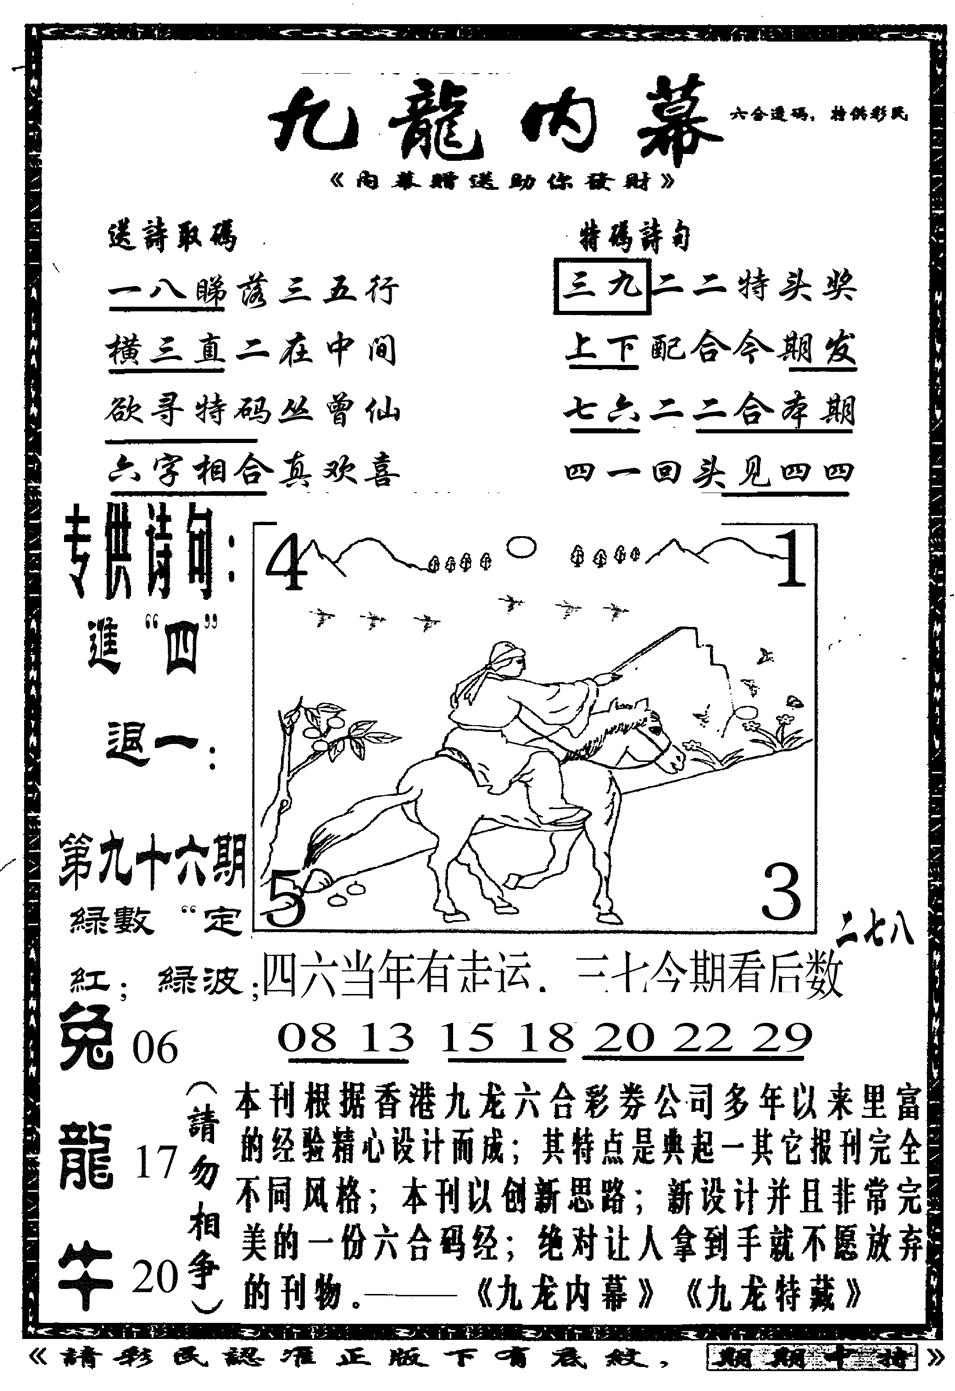 九龍内幕
六合透码，特供彩民
《内幕赠送助你發財》
送詩取碼
一八睇落三五行
横三直二在中间
欲寻特码丛曾仙
六字相合真欢喜
特碼詩句
三九二二特头奖
上下配合今期发
七六二二合本期
四一回头见四四
专供诗句：
進“四”
退一：
第九十六期
緑數“定
紅；緑波；
4 1
5 3
二七八
四六当年有走运．三七今期看后数
08 13 15 18 20 22 29
兔 06
龍 17
牛 20
（請勿相争）
本刊根据香港九龙六合彩券公司多年以来里富
的经验精心设计而成；其特点是典起一其它报刊完全
不同风格；本刊以创新思路；新设计并且非常完
美的一份六合码经；绝对让人拿到手就不愿放弃
的刊物。——《九龙内幕》《九龙特藏》
《請彩民認准正版下有底紋，期期中特》